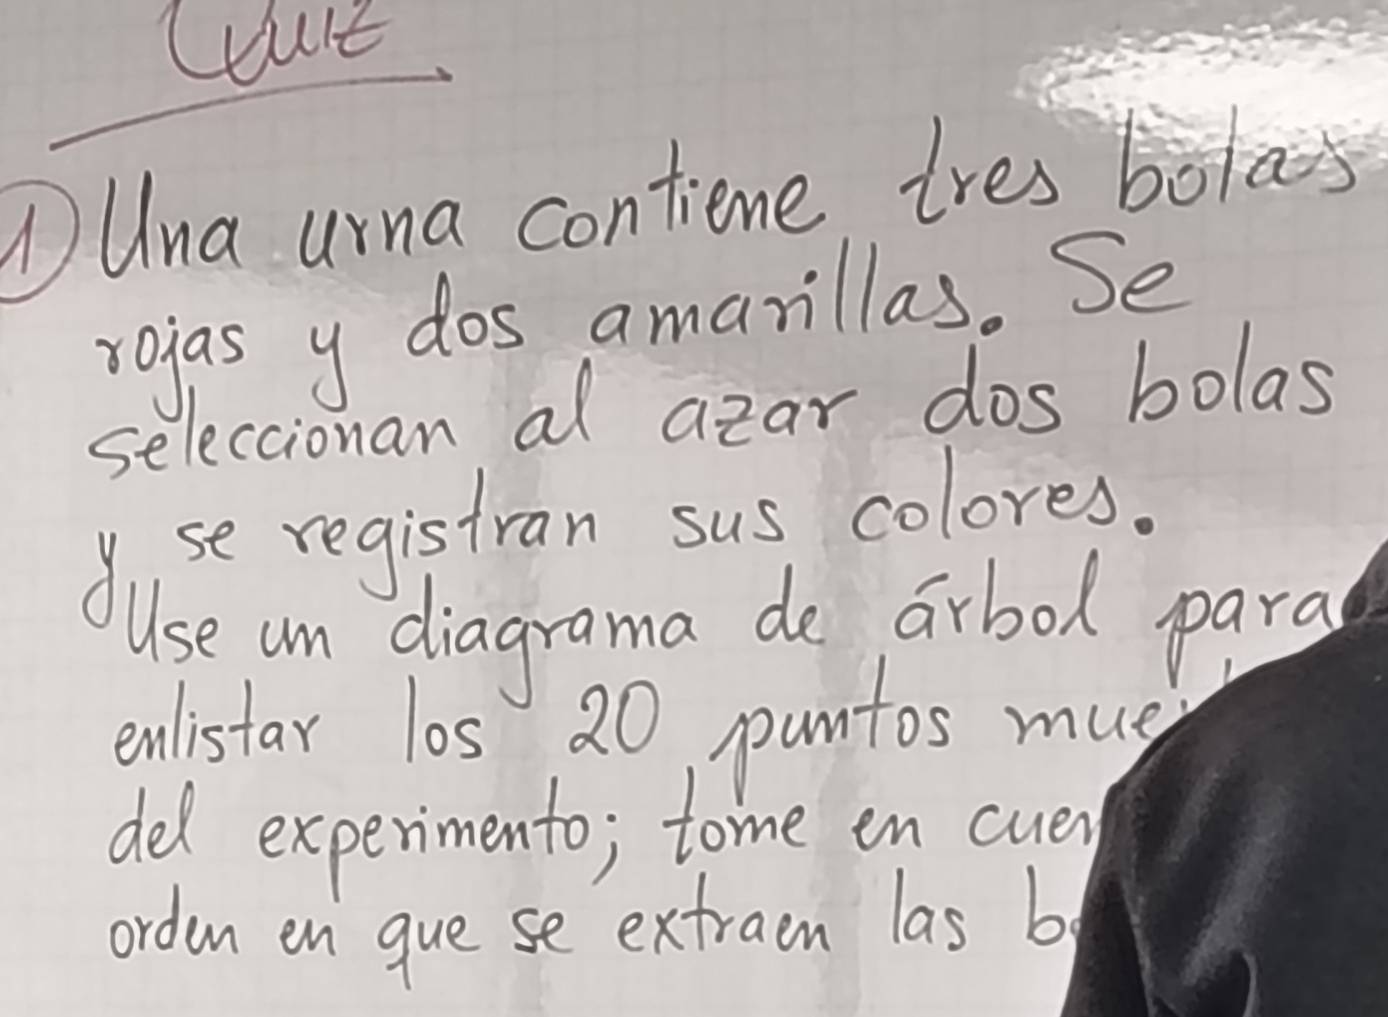 Quiz
① Una urna contiene tres bolas
rojas y dos amarillas. Se
seleccionan al azar dos bolas
y se registran sus colores.
Use un diagrama de árbol para
enlistar los 20 puntos
del experimento; tome en
orden en que se extraen las